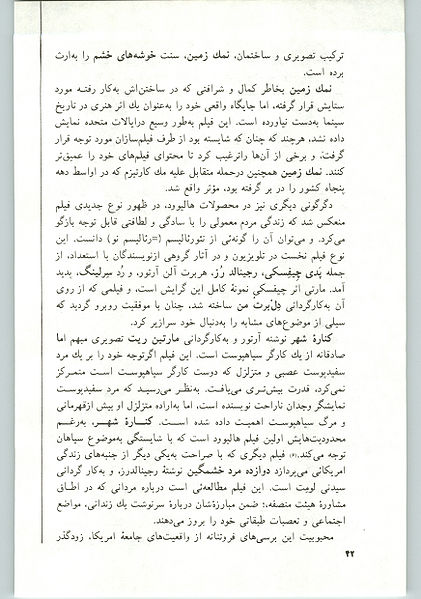 ترکیب تصویری و ساختمان، نمك زمین، سنت خوشه‌های خشم را به‌ارث
برده است.
نمك زمین بخاطر کمال و شرافتی که در ساختن‌اش به‌کار رفته مورد
ستایش قرار گرفته، اما جایگاه واقعی خود را به‌عنوان یك اثر هنری در تاریخ
سینما به‌دست نیاورده است. این فیلم به‌طور وسیع درایالات متحده نمایش
داده نشد، هرچند که چنان که شایسته بود از طرف فیلم‌سازان مورد توجه قرار
گرفت، و برخی از آن‌ها راترغیب کرد تا محتوای فیلم‌های خود را عمیق‌تر
کنند. نمك زمین همچنین درحمله متقابل علیه مك کارتیزم که در اواسط دهه
پنجاه کشور را در بر گرفته بود، مؤثر واقع شد.
دگرگونی دیگری نیز در محصولات هالیوود، در ظهور نوع جدیدی فیلم
منعکس شد که زندگی مردم معمولی را با سادگی و لطافتی قابل توجه بازگو
می‌کرد. و می‌توان آن را گونه‌ئی از نئورئالیسم (=رئالیسم نو) دانست. این
نوع فیلم نخست در تلویزیون و در آثار گروهی ازنویسندگان با استعداد، از
جمله پدی چیفسکی، رجینالد رُز، هربرت آلن آرتور، و رُد سِرلینگ، پدید
آمد. مارتی اثر چیفسکی نمونهٔ کامل این گرایش است، و فیلمی که از روی
آن به‌کارگردانی دِلْبرت من ساخته شد، چنان با موفقیت روبرو گردید که
سیلی از موضوع‌های مشابه را به‌دنبال خود سرازیر کرد.
کنارهٔ شهر نوشته آرتور و به‌کارگردانی مارتین ریت تصویری مبهم اما
صادقانه از یك کارگر سیاهپوست است. این فیلم اگرتوجه خود را بر یك مرد
سفیدپوست عصبی و متزلزل که دوست کارگر سیاهپوست است متمرکز
نمی‌کرد، قدرت بیش‌تری می‌یافت. به‌نظر می‌رسید که مرد سفیدپوست
نمایشگر وجدان ناراحت نویسنده است، اما به‌اراده متزلزل او بیش ازقهرمانی
و مرگ سیاهپوست اهمیت داده شده است. کنارهٔ شهر، به‌رغم
محدودیت‌هایش اولین فیلم هالیوود است که با شایستگی به‌موضوع سیاهان
توجه می‌کند. فیلم دیگری که با صراحت به‌یکی دیگر از جنبه‌های زندگی
امریکائی می‌پردازد دوازده مرد خشمگین نوشتهٔ رجینالدرز، و به‌کار گردانی
سیدنی لومِت است. این فیلم مطالعه‌ئی است درباره مردانی که در اطاق
مشاورهٔ هیئت منصفه، ضمن مبارزه‌شان دربارهٔ سرنوشت یك زندانی، مواضع
اجتماعی و تعصبات طبقاتی خود را بروز می‌دهند.
محبوبیت این بررسی‌های فروتنانه از واقعیت‌های جامعهٔ امریکا، زودگذر
۴۲